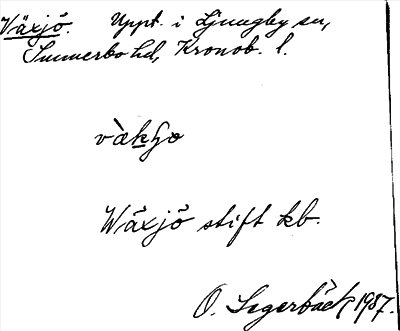 Växjö. Uppt. i Ljungby sn,
Sunnerbo hd, Kronob. l.
Wäxjö stift kb.
O. Segerbäck 1987.